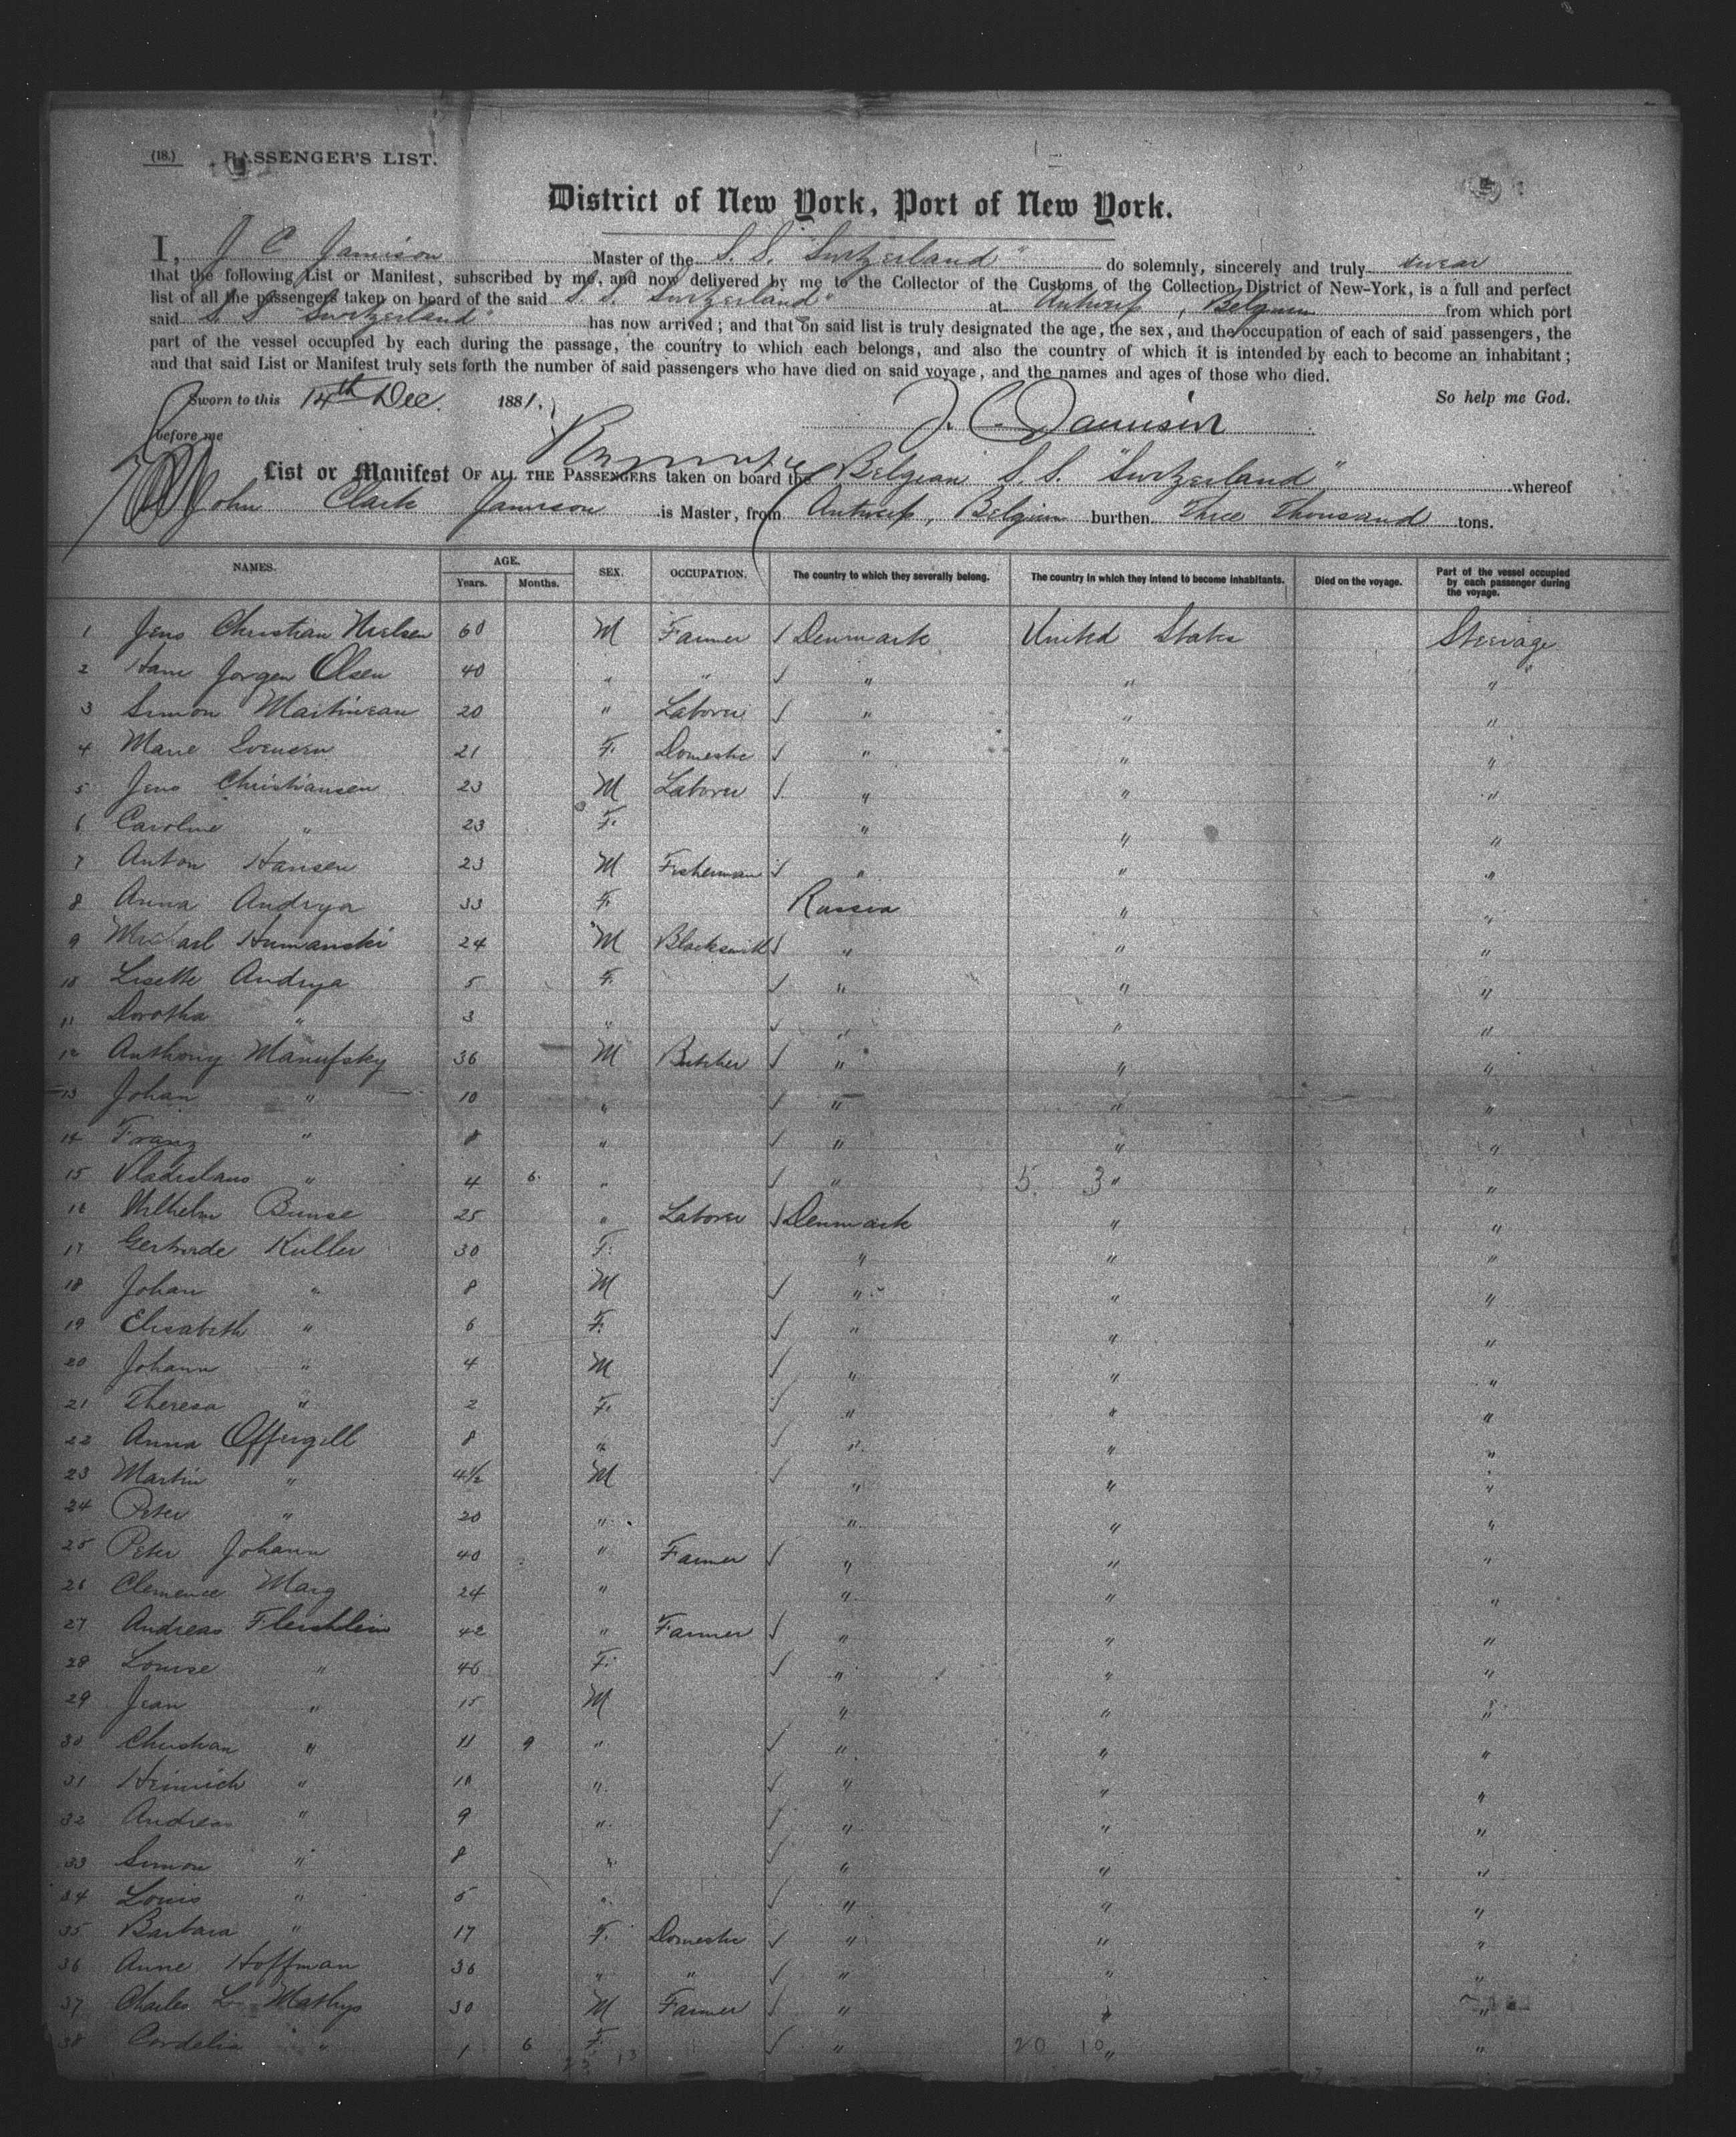 (18.) PASSENGER'S LIST.
District of New York, Port of New York.
I, J C Jamison Master of the S. S. "Switzerland" do solemnly, sincerely and truly swear
that the following List or Manifest, subscribed by me, and now delivered by me to the Collector of the Customs of the Collection District of New-York, is a full and perfect
list of all the passengers taken on board of the said S. S. Switzerland" at Antwerp, Belgium from which port
said S. S "Switzerland" has now arrived; and that on said list is truly designated the age, the sex, and the occupation of each of said passengers, the
part of the vessel occupied by each during the passage, the country to which each belongs, and also the country of which it is intended by each to become an inhabitant;
and that said List or Manifest truly sets forth the number of said passengers who have died on said voyage, and the names and ages of those who died.
Sworn to this 14th Dec. 1881. So help me God.
before me J. C. Jamison
List or Manifest OF ALL THE PASSENGERS taken on board the Belgian S. S. "Switzerland" whereof
John Clark Jamison is Master, from Antwerp, Belgium burthen Three Thousand tons.
NAMES. AGE. Years. Months. SEX. OCCUPATION. The country to which they severally belong. The country in which they intend to become inhabitants. Died on the voyage. Part of the vessel occupied by each passenger during the voyage.
1 Jens Christian Nielsen 60 M Farmer / Denmark United States Steerage
2 Hans Jorgen Olsen 40 " " / " " "
3 Simon 20 " Laborer / " " "
4 Marie 21 F. Domestic / " " "
5 Jens Christiansen 23 M Laborer / " " "
6 Caroline " 23 F. " " "
7 Anton Hansen 23 M Fisherman / " " "
8 Anna Andrya 33 F. Russia " "
9 Michael Humanski 24 M Blacksmith / " " "
10 Lisette Andrya 5 F. / " " "
11 Dorotha " 3 " / " " "
12 Anthony Manufsky 36 M Butcher / " " "
13 Johan " 10 " / " " "
14 Franz " 8 " / " " "
15 Vladislaus " 4 6 " / " 5. 3 " "
16 Wilhelm Bunse 25 " Laborer / Denmark " "
17 Gertrude Kuller 30 F. " " "
18 Johan " 8 M / " " "
19 Elisabeth " 6 F. / " " "
20 Johann " 4 M / " " "
21 Theresa " 2 F. / " " "
22 Anna Offergell 8 " / " " "
23 Martin " 4½ M / " " "
24 Peter " 20 " " " "
25 Peter Johann 40 " Farmer / " " "
26 Clemence Marg 24 " " " "
27 Andreas Fleishlein 42 " Farmer / " " "
28 Louise " 46 F. / " " "
29 Jean " 15 M " " "
30 Christian " 11 9 " / " " "
31 Heinrich " 10 " / " " "
32 Andreas " 9 " / " " "
33 Simon " 8 " / " " "
34 Louis " 5 " / " " "
35 Barbara " 17 F. Domestic / " " "
36 Anne Hoffman 36 " " / " " "
37 Charles L. Mathys 30 M Farmer / " " "
38 Cordelia " 1 6 F. / " 20 10 " "
23 13